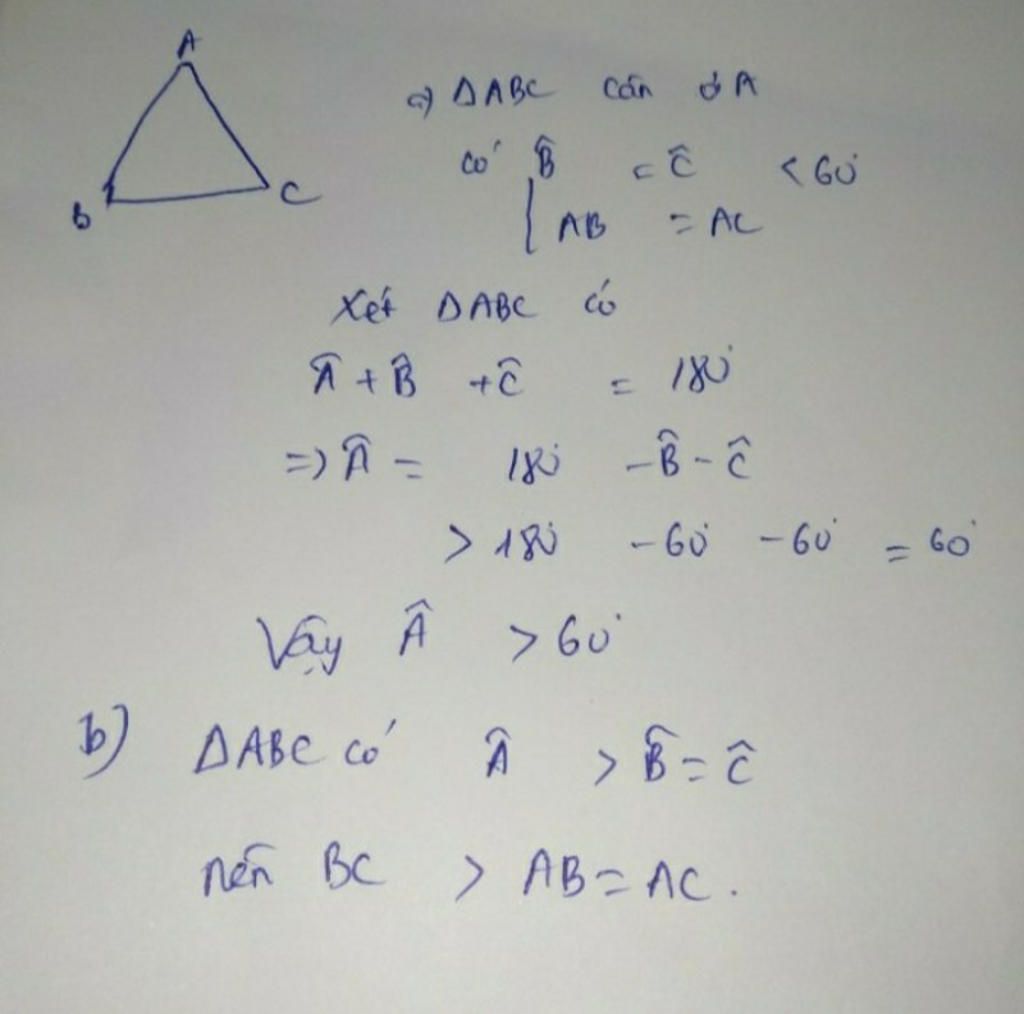 A
B
C
a) ΔABC cân ở A
có B̂ = Ĉ < 60°
AB = AC
Xét ΔABC có
Â + B̂ + Ĉ = 180°
=> Â = 180° - B̂ - Ĉ
> 180° - 60° - 60° = 60°
Vậy Â > 60°
b) ΔABC có Â > B̂ = Ĉ
nên BC > AB = AC.